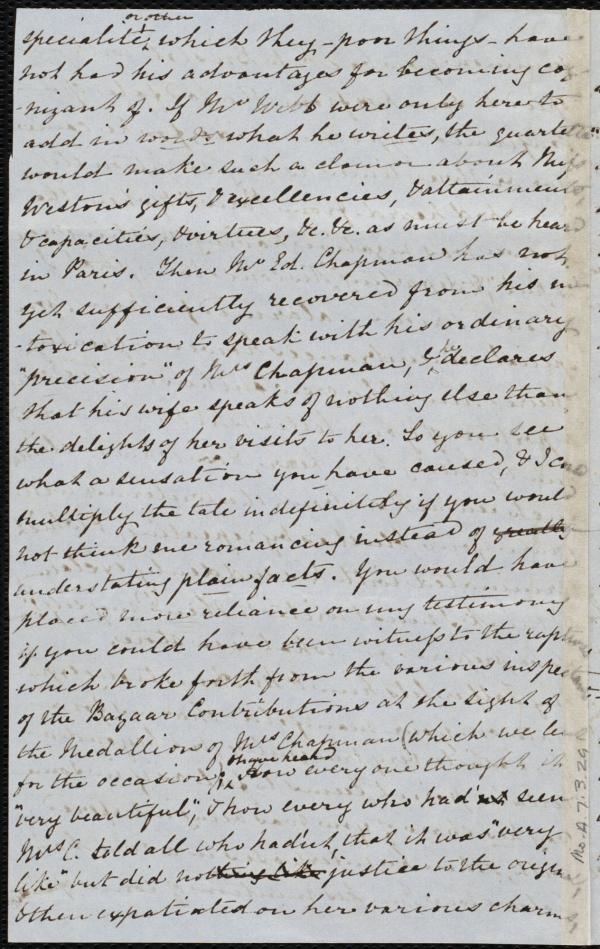 or other
specialité, which they – poor things – have
not had his advantages for becoming cog-
-nizant of. If Mr Webb were only here to
add in words what he writes, the quartette
would make such a clamor about Miss
Weston's gifts, & excellencies, & attainments
& capacities, & virtues, &c. &c. as must be heard
in Paris. Then Mr Ed. Chapman has not
yet sufficiently recovered from his in
-toxication to speak with his ordinary
"precision" of Mrs Chapman, & he declares
that his wife speaks of nothing else than
the delights of her visits to her. So you see
what a sensation you have caused, & I can
multiply the tale indefinitely if you would
not think me romancing instead of greatly
understating plain facts. You would have
placed more reliance on my testimony
if you could have been witness to the raptures
which broke forth from the various inspec
of the Bazaar Contributions at the sight of
the Medallion of Mrs Chapman (which we len
for the occasion,
or we heard
how every one thought it
"very beautiful", & how every who had seen
Mrs C. told all who hadn't, that it was "very
like" but did nothing like justice to the origin
& then expatiated on her various charms,
Ms. A. 7. 3. 29